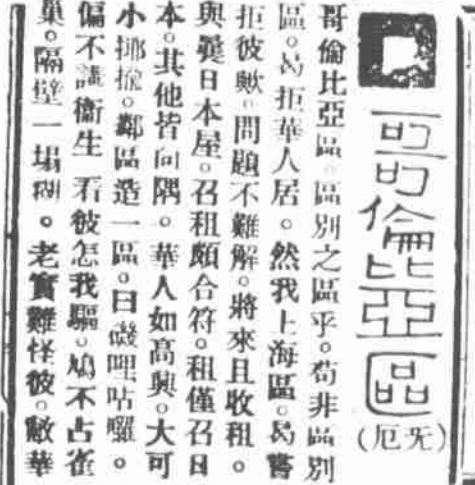 哥倫比亞區
(旡厄)
哥倫比亞區。區別之區乎。苟非區別
區。曷拒華人居。然我上海區。曷嘗
拒彼歟。問題不難解。將來且收租。
與龔日本屋。召租頗合符。租僅召日
本。其他皆向隅。華人如高興。大可
小揶揄。鄰區造一區。曰磯哩咕囉。
偏不講衞生 看彼怎我驅。鳩不占雀
巢。隔壁一塲糊。老實難怪彼。敝華